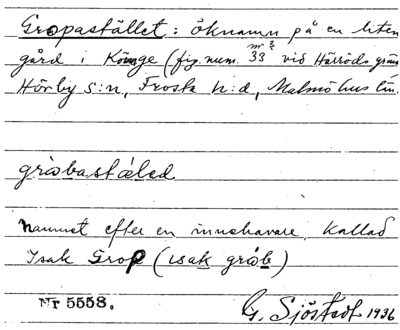 Gropastället: öknamn på en liten
gård i Könge (fig. num. nr 33 vid Härröds gräns
Hörby s:n, Frosta h:d, Malmöhus län.
gråbastæled
Namnet efter en innehavare, kallad
Isak Grop (isak gråb)
Nr 5558.
G. Sjöstedt 1936